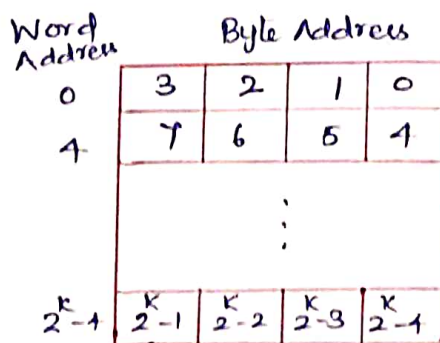 Word Byte Address
Address
0 3 2 1 0
4 7 6 5 4
⋮
2^k-4 2^k-1 2^k-2 2^k-3 2^k-4